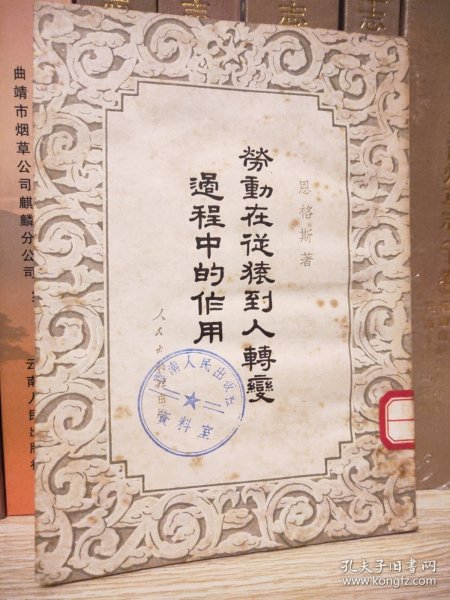 恩格斯著
勞動在從猿到人轉變
過程中的作用
人民出版社出版
雲南人民出版社
資料室
曲靖市烟草公司麒麟分公司
云南人民出版社
志
志
孔夫子旧书网
www.kongfz.com